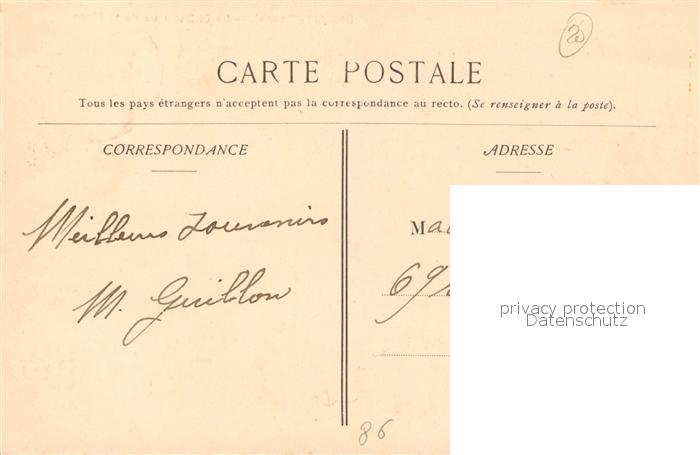 CARTE POSTALE
Tous les pays étrangers n'acceptent pas la correspondance au recto. (Se renseigner à la poste).
CORRESPONDANCE
ADRESSE
Meilleurs Souvenirs
M. Guillon
86
privacy protection
Datenschutz